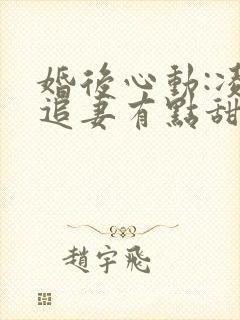 婚後心動:凌
追妻有點甜
趙宇飛